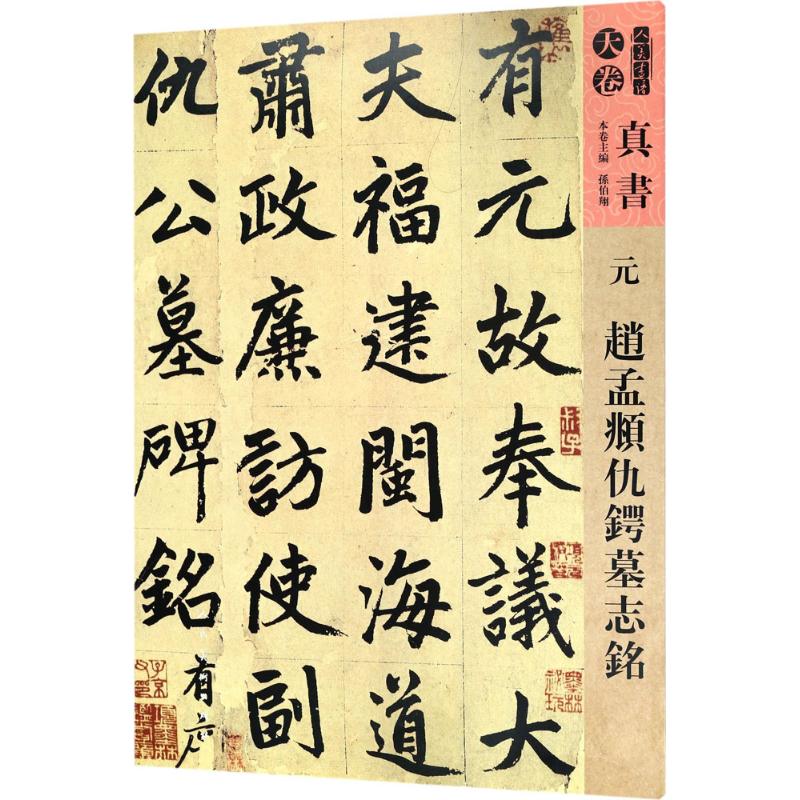 人美書法
天卷
真書
本卷主编 孫伯翔
元
趙孟頫仇鍔墓志銘
有元故奉議大
夫福建閩海道
肅政廉訪使副
仇公墓碑銘
有序